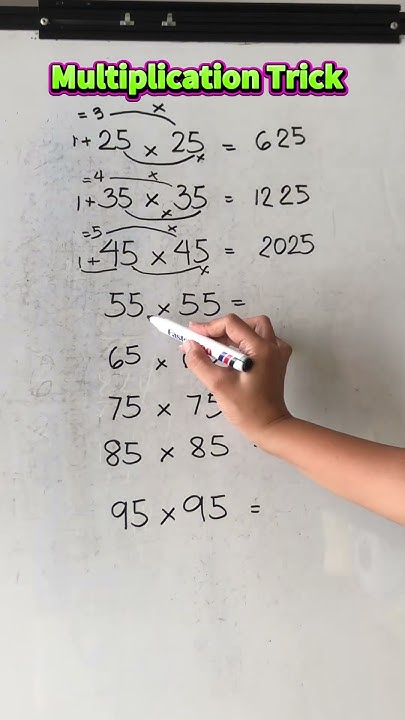 Multiplication Trick
=3 x
1+25 x 25 = 625
x
=4 x
1+35 x 35 = 1225
x
=5 x
1+45 x 45 = 2025
x
55 x 55 =
65 x
75 x 75
85 x 85
95 x 95 =